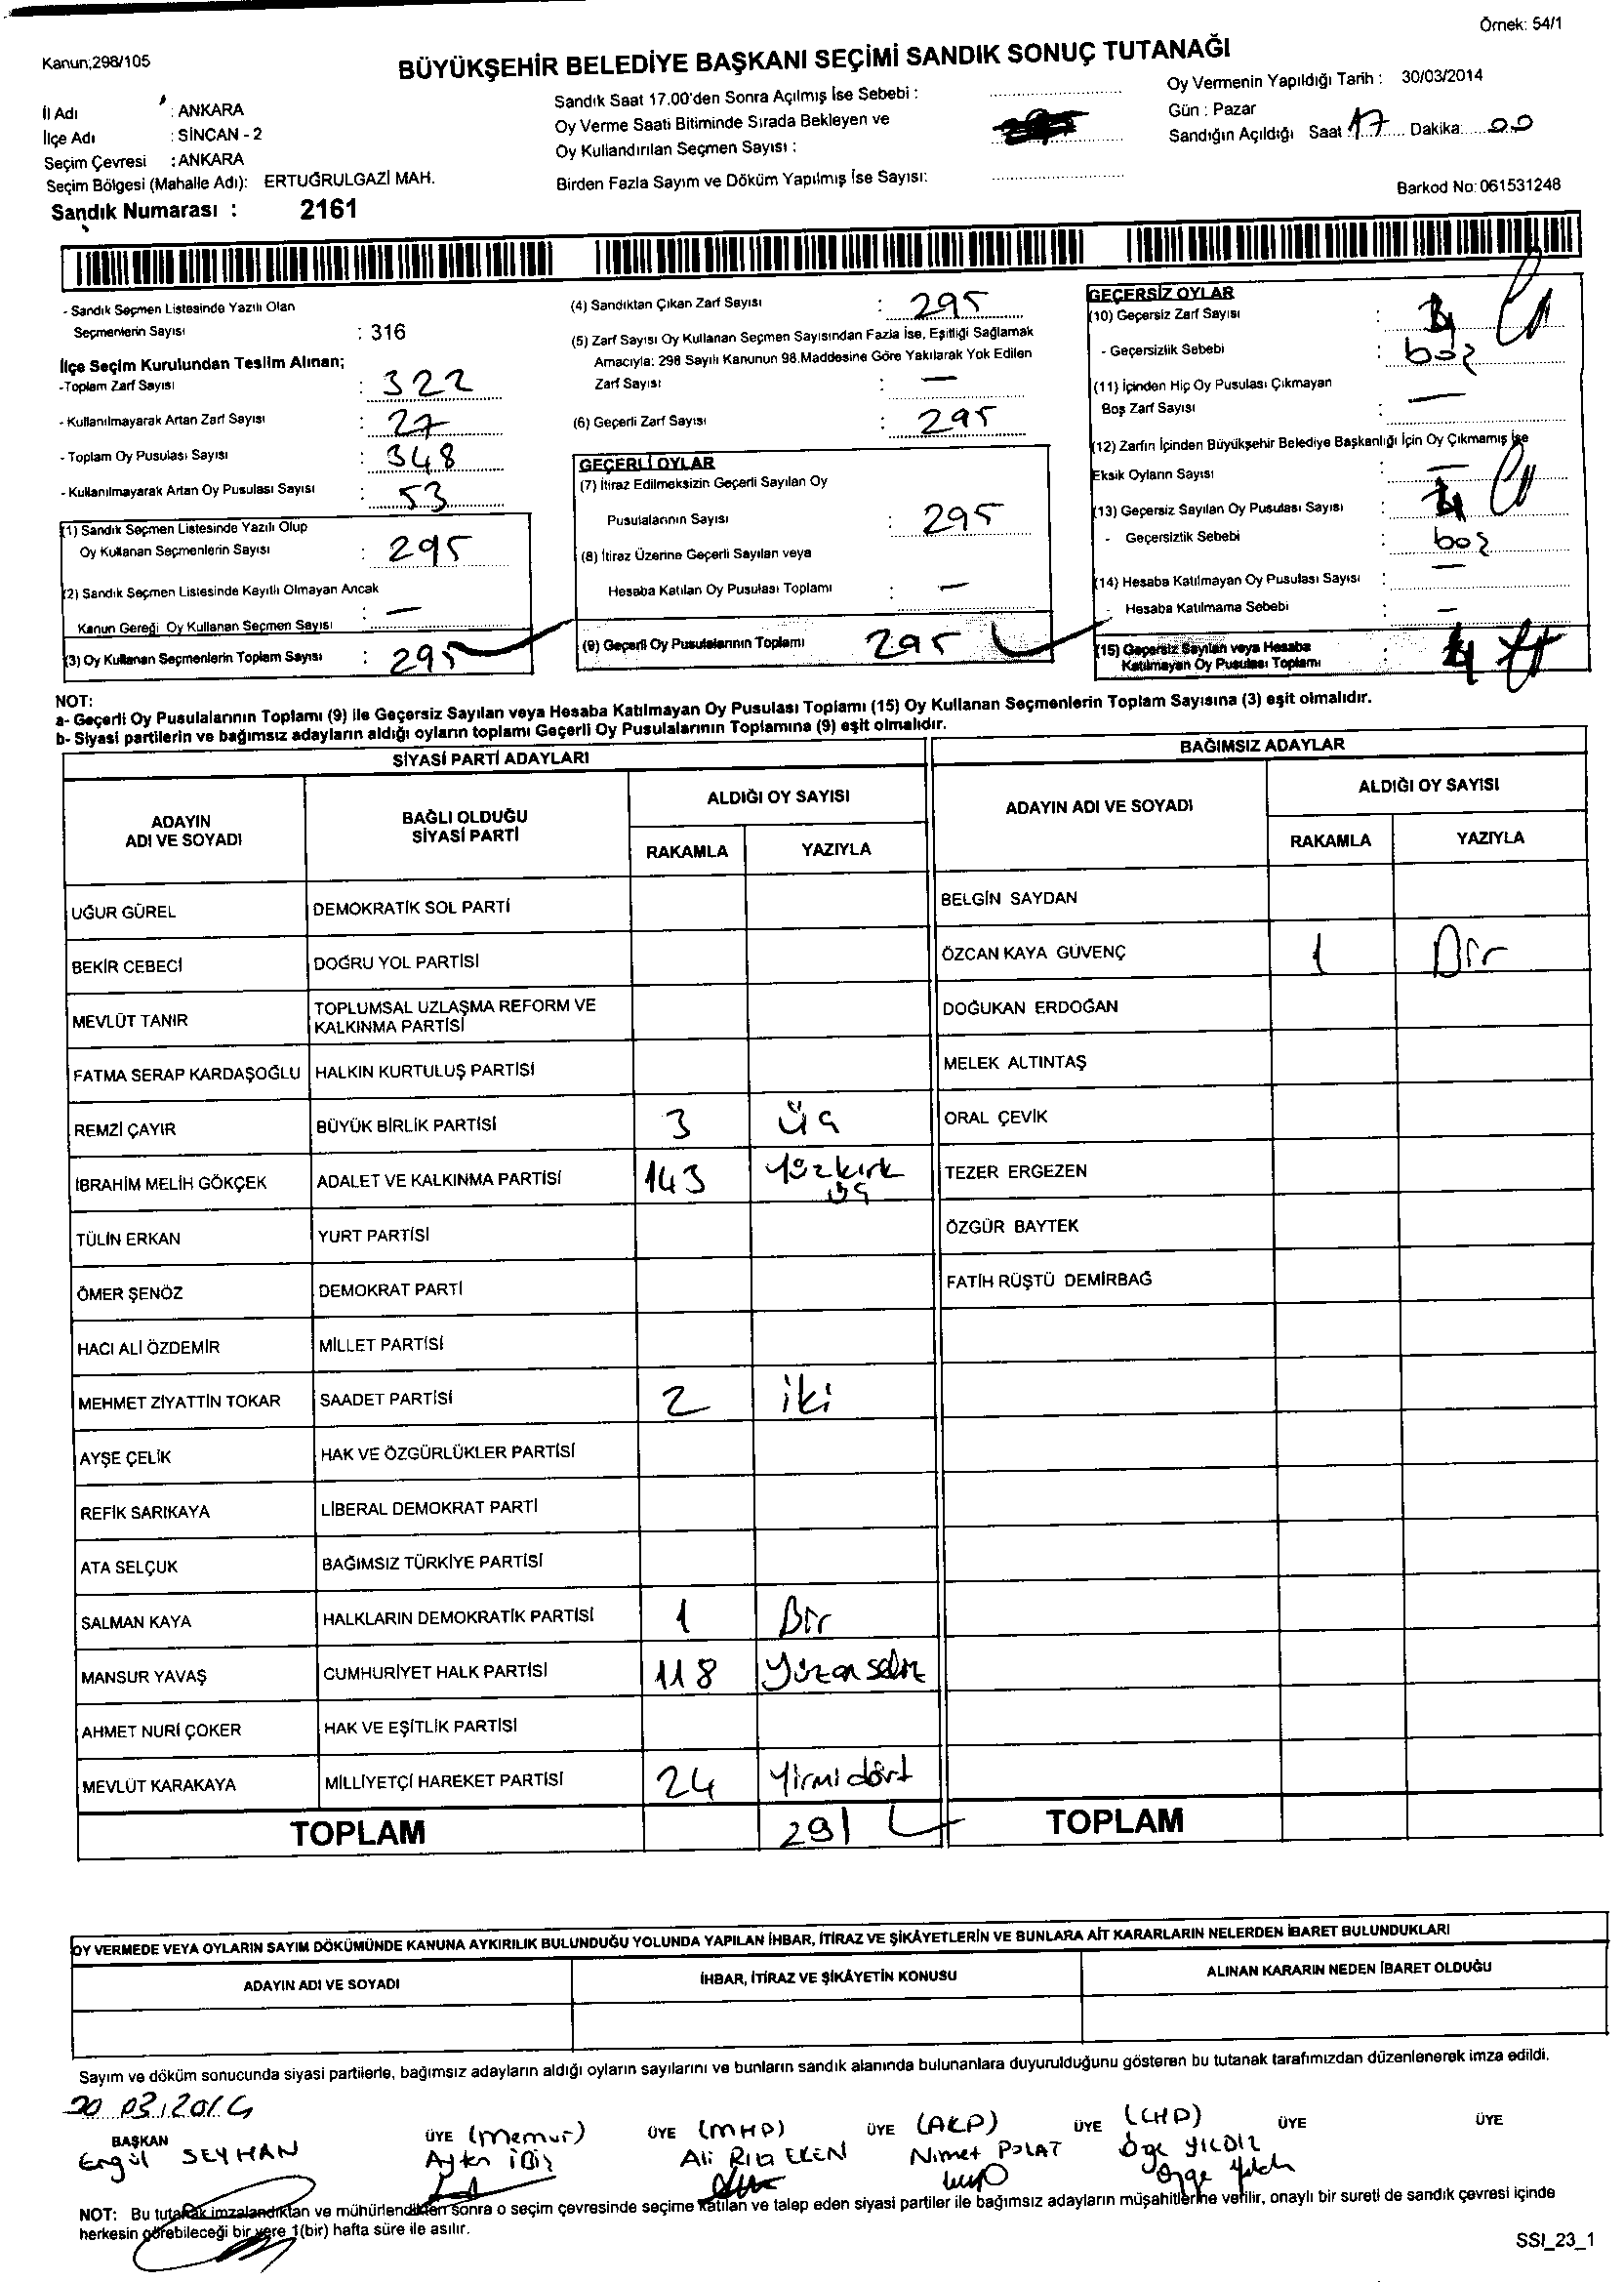 Örnek: 54/1
Kanun;298/105
BÜYÜKŞEHİR BELEDİYE BAŞKANI SEÇİMİ SANDIK SONUÇ TUTANAĞI
İl Adı : ANKARA
İlçe Adı : SİNCAN - 2
Seçim Çevresi : ANKARA
Seçim Bölgesi (Mahalle Adı): ERTUĞRULGAZİ MAH.
Sandık Numarası : 2161
Sandık Saat 17.00'den Sonra Açılmış İse Sebebi :
Oy Verme Saati Bitiminde Sırada Bekleyen ve
Oy Kullandırılan Seçmen Sayısı :
Birden Fazla Sayım ve Döküm Yapılmış İse Sayısı:
Oy Vermenin Yapıldığı Tarih : 30/03/2014
Gün : Pazar
Sandığın Açıldığı Saat 17 Dakika: 00
Barkod No: 061531248
- Sandık Seçmen Listesinde Yazılı Olan
Seçmenlerin Sayısı : 316
İlçe Seçim Kurulundan Teslim Alınan;
-Toplam Zarf Sayısı : 322
- Kullanılmayarak Artan Zarf Sayısı : 27
- Toplam Oy Pusulası Sayısı : 348
- Kullanılmayarak Artan Oy Pusulası Sayısı : 53
(1) Sandık Seçmen Listesinde Yazılı Olup
Oy Kullanan Seçmenlerin Sayısı : 295
(2) Sandık Seçmen Listesinde Kayıtlı Olmayan Ancak
Kanun Gereği Oy Kullanan Seçmen Sayısı : —
(3) Oy Kullanan Seçmenlerin Toplam Sayısı : 295
(4) Sandıktan Çıkan Zarf Sayısı : 295
(5) Zarf Sayısı Oy Kullanan Seçmen Sayısından Fazla İse, Eşitliği Sağlamak
Amacıyla: 298 Sayılı Kanunun 98.Maddesine Göre Yakılarak Yok Edilen
Zarf Sayısı : —
(6) Geçerli Zarf Sayısı : 295
GEÇERLİ OYLAR
(7) İtiraz Edilmeksizin Geçerli Sayılan Oy
Pusulalarının Sayısı : 295
(8) İtiraz Üzerine Geçerli Sayılan veya
Hesaba Katılan Oy Pusulası Toplamı : —
(9) Geçerli Oy Pusulalarının Toplamı 295
GEÇERSİZ OYLAR
(10) Geçersiz Zarf Sayısı :
- Geçersizlik Sebebi : boş
(11) İçinden Hiç Oy Pusulası Çıkmayan
Boş Zarf Sayısı : —
(12) Zarfın İçinden Büyükşehir Belediye Başkanlığı İçin Oy Çıkmamış İse
Eksik Oyların Sayısı : —
(13) Geçersiz Sayılan Oy Pusulası Sayısı :
- Geçersizlik Sebebi : boş
(14) Hesaba Katılmayan Oy Pusulası Sayısı : —
- Hesaba Katılmama Sebebi : —
(15) Geçersiz Sayılan veya Hesaba
Katılmayan Oy Pusulası Toplamı :
NOT:
a- Geçerli Oy Pusulalarının Toplamı (9) ile Geçersiz Sayılan veya Hesaba Katılmayan Oy Pusulası Toplamı (15) Oy Kullanan Seçmenlerin Toplam Sayısına (3) eşit olmalıdır.
b- Siyasi partilerin ve bağımsız adayların aldığı oyların toplamı Geçerli Oy Pusulalarının Toplamına (9) eşit olmalıdır.
SİYASİ PARTİ ADAYLARI
ADAYIN ADI VE SOYADI
BAĞLI OLDUĞU SİYASİ PARTİ
ALDIĞI OY SAYISI
RAKAMLA YAZIYLA
UĞUR GÜREL DEMOKRATİK SOL PARTİ
BEKİR CEBECİ DOĞRU YOL PARTİSİ
MEVLÜT TANIR TOPLUMSAL UZLAŞMA REFORM VE KALKINMA PARTİSİ
FATMA SERAP KARDAŞOĞLU HALKIN KURTULUŞ PARTİSİ
REMZİ ÇAYIR BÜYÜK BİRLİK PARTİSİ 3 Üç
İBRAHİM MELİH GÖKÇEK ADALET VE KALKINMA PARTİSİ 143 Yüzkırk üç
TÜLİN ERKAN YURT PARTİSİ
ÖMER ŞENÖZ DEMOKRAT PARTİ
HACI ALİ ÖZDEMİR MİLLET PARTİSİ
MEHMET ZİYATTİN TOKAR SAADET PARTİSİ 2 iki
AYŞE ÇELİK HAK VE ÖZGÜRLÜKLER PARTİSİ
REFİK SARIKAYA LİBERAL DEMOKRAT PARTİ
ATA SELÇUK BAĞIMSIZ TÜRKİYE PARTİSİ
SALMAN KAYA HALKLARIN DEMOKRATİK PARTİSİ 1 Bir
MANSUR YAVAŞ CUMHURİYET HALK PARTİSİ 118 Yüzon sekiz
AHMET NURİ ÇOKER HAK VE EŞİTLİK PARTİSİ
MEVLÜT KARAKAYA MİLLİYETÇİ HAREKET PARTİSİ 24 Yirmi dört
TOPLAM 291
BAĞIMSIZ ADAYLAR
ADAYIN ADI VE SOYADI
ALDIĞI OY SAYISI
RAKAMLA YAZIYLA
BELGİN SAYDAN
ÖZCAN KAYA GÜVENÇ 1 Bir
DOĞUKAN ERDOĞAN
MELEK ALTINTAŞ
ORAL ÇEVİK
TEZER ERGEZEN
ÖZGÜR BAYTEK
FATİH RÜŞTÜ DEMİRBAĞ
TOPLAM
OY VERMEDE VEYA OYLARIN SAYIM DÖKÜMÜNDE KANUNA AYKIRILIK BULUNDUĞU YOLUNDA YAPILAN İHBAR, İTİRAZ VE ŞİKÂYETLERİN VE BUNLARA AİT KARARLARIN NELERDEN İBARET BULUNDUKLARI
ADAYIN ADI VE SOYADI İHBAR, İTİRAZ VE ŞİKÂYETİN KONUSU ALINAN KARARIN NEDEN İBARET OLDUĞU
Sayım ve döküm sonucunda siyasi partilerle, bağımsız adayların aldığı oyların sayılarını ve bunların sandık alanında bulunanlara duyurulduğunu gösteren bu tutanak tarafımızdan düzenlenerek imza edildi.
30.03.2014
BAŞKAN ÜYE (Memur) ÜYE (MHP) ÜYE (AKP) ÜYE (CHP) ÜYE ÜYE
Ergül SEYHAN Ayten İBİŞ Ali Rıza EKEN Nimet POLAT Özge YILDIZ
Özge Yıldız
NOT: Bu tutanak imzalandıktan ve mühürlendikten sonra o seçim çevresinde seçime katılan ve talep eden siyasi partiler ile bağımsız adayların müşahitlerine verilir, onaylı bir sureti de sandık çevresi içinde
herkesin görebileceği bir yere 1(bir) hafta süre ile asılır.
SSI_23_1